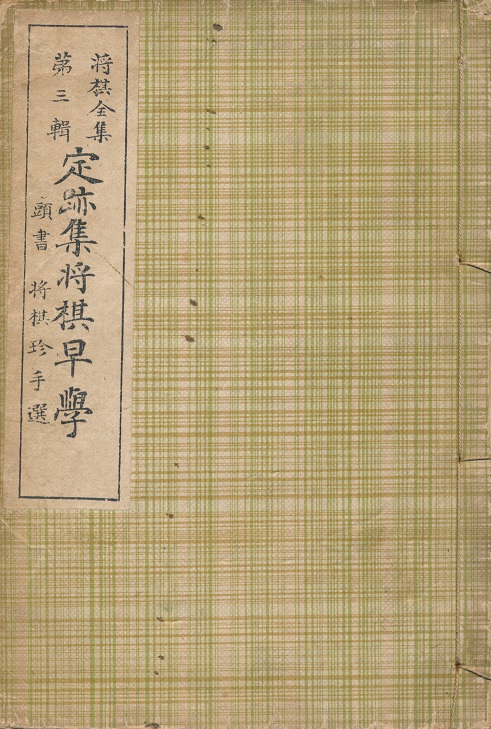 将棋全集
第三輯
定跡集将棋早學
頭書 将棋珍手選